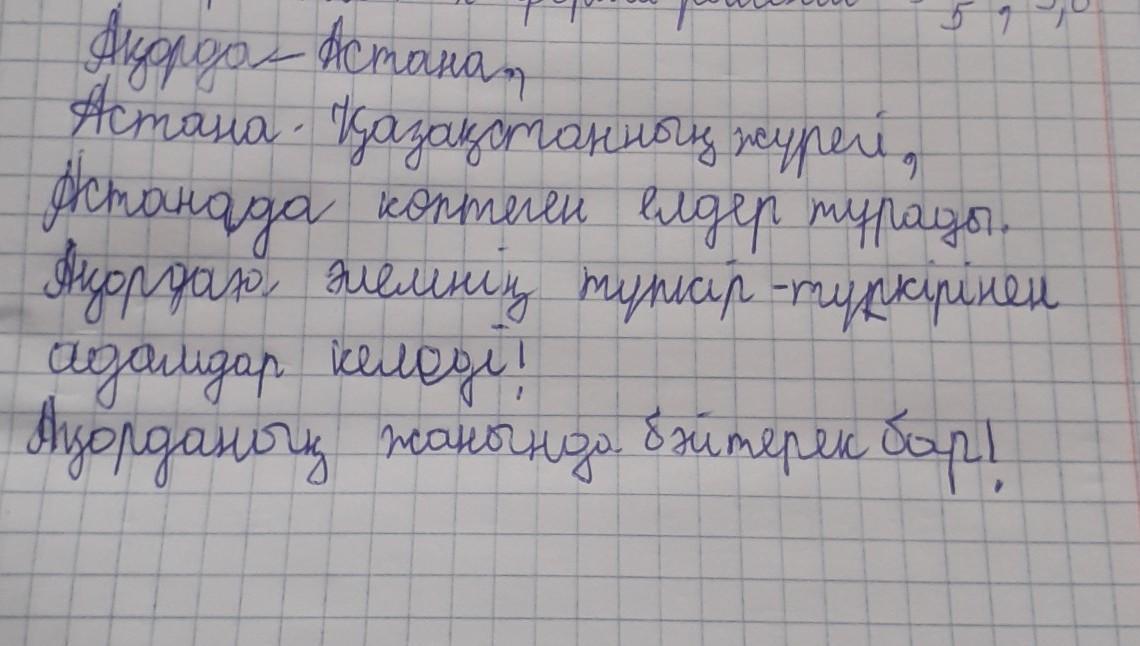 Ақорда – Астана,
Астана - Қазақстанның жүрегі,
Астанада көптеген елдер тұрады.
Ақордаға әлемнің түпкір-түпкірінен
адамдар келеді!
Ақорданың жанында бәйтерек бар!